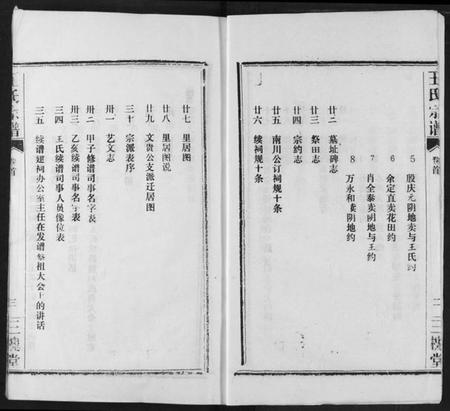 王氏宗谱
卷首
二
三槐堂
5 殷庆元阴地卖与王氏约
6 余定直卖花田约
7 肖全泰卖阴地与王约
8 万永和卖阴地约
廿二 墓址碑志
廿三 祭田志
廿四 宗约志
廿五 南川公订祠规十条
廿六 续祠规十条
廿七 里居图
廿八 里居图说
廿九 文贵公支派迁居图
三十 宗派表序
卅一 艺文志
卅二 甲子修谱司事名字表
卅三 乙亥续谱司事名字表
三四 王氏续谱司事人员像位表
三五 续谱建祠办公室主任在发谱祭祖大会上的讲话
氏宗谱
卷首
三
三槐堂